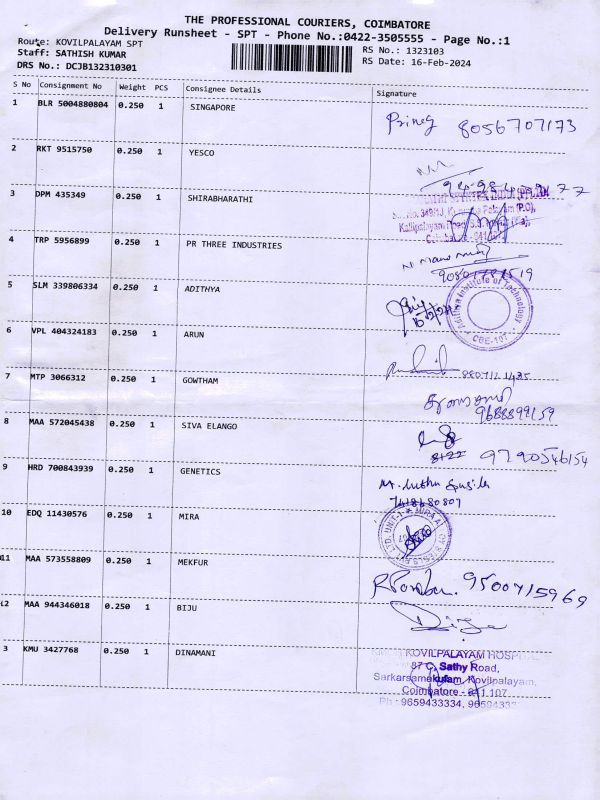 THE PROFESSIONAL COURIERS, COIMBATORE
Delivery Runsheet - SPT - Phone No.:0422-3505555 - Page No.:1
Route: KOVILPALAYAM SPT
Staff: SATHISH KUMAR
DRS No.: DCJB132310301
RS No.: 1323103
RS Date: 16-Feb-2024
S No Consignment No Weight PCS Consignee Details Signature
1 BLR 5004880804 0.250 1 SINGAPORE
8056707173
2 RKT 9515750 0.250 1 YESCO
3 DPM 435349 0.250 1 SHIRABHARATHI
Coimbatore - 641
4 TRP 5956899 0.250 1 PR THREE INDUSTRIES
5 SLM 339806334 0.250 1 ADITHYA
Adithya Institute of Technology
CBE-107
6 VPL 404324183 0.250 1 ARUN
7 MTP 3066312 0.250 1 GOWTHAM
9688899159
8 MAA 572045438 0.250 1 SIVA ELANGO
9790546154
9 HRD 700843939 0.250 1 GENETICS
7418680807
10 EDQ 11430576 0.250 1 MIRA
LTD. UNIT-1 ★ MIRA
11 MAA 573558809 0.250 1 MEKFUR
9500715969
12 MAA 944346018 0.250 1 BIJU
3 KMU 3427768 0.250 1 DINAMANI
KOVILPALAYAM HOSPITAL
Sathy Road,
Sarkarsamakulam, Kovilpalayam,
Coimbatore - 641 107
Ph : 9659433334,